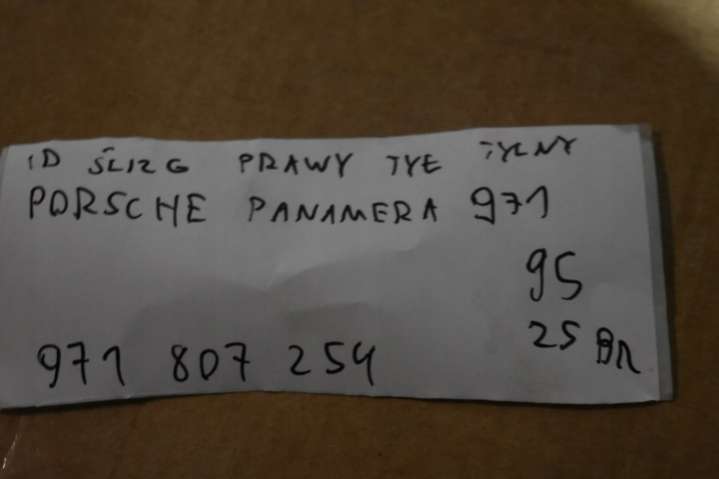 ID ŚLIZG PRAWY TYŁ TYLNY
PORSCHE PANAMERA 971
95
25 BR
971 807 254